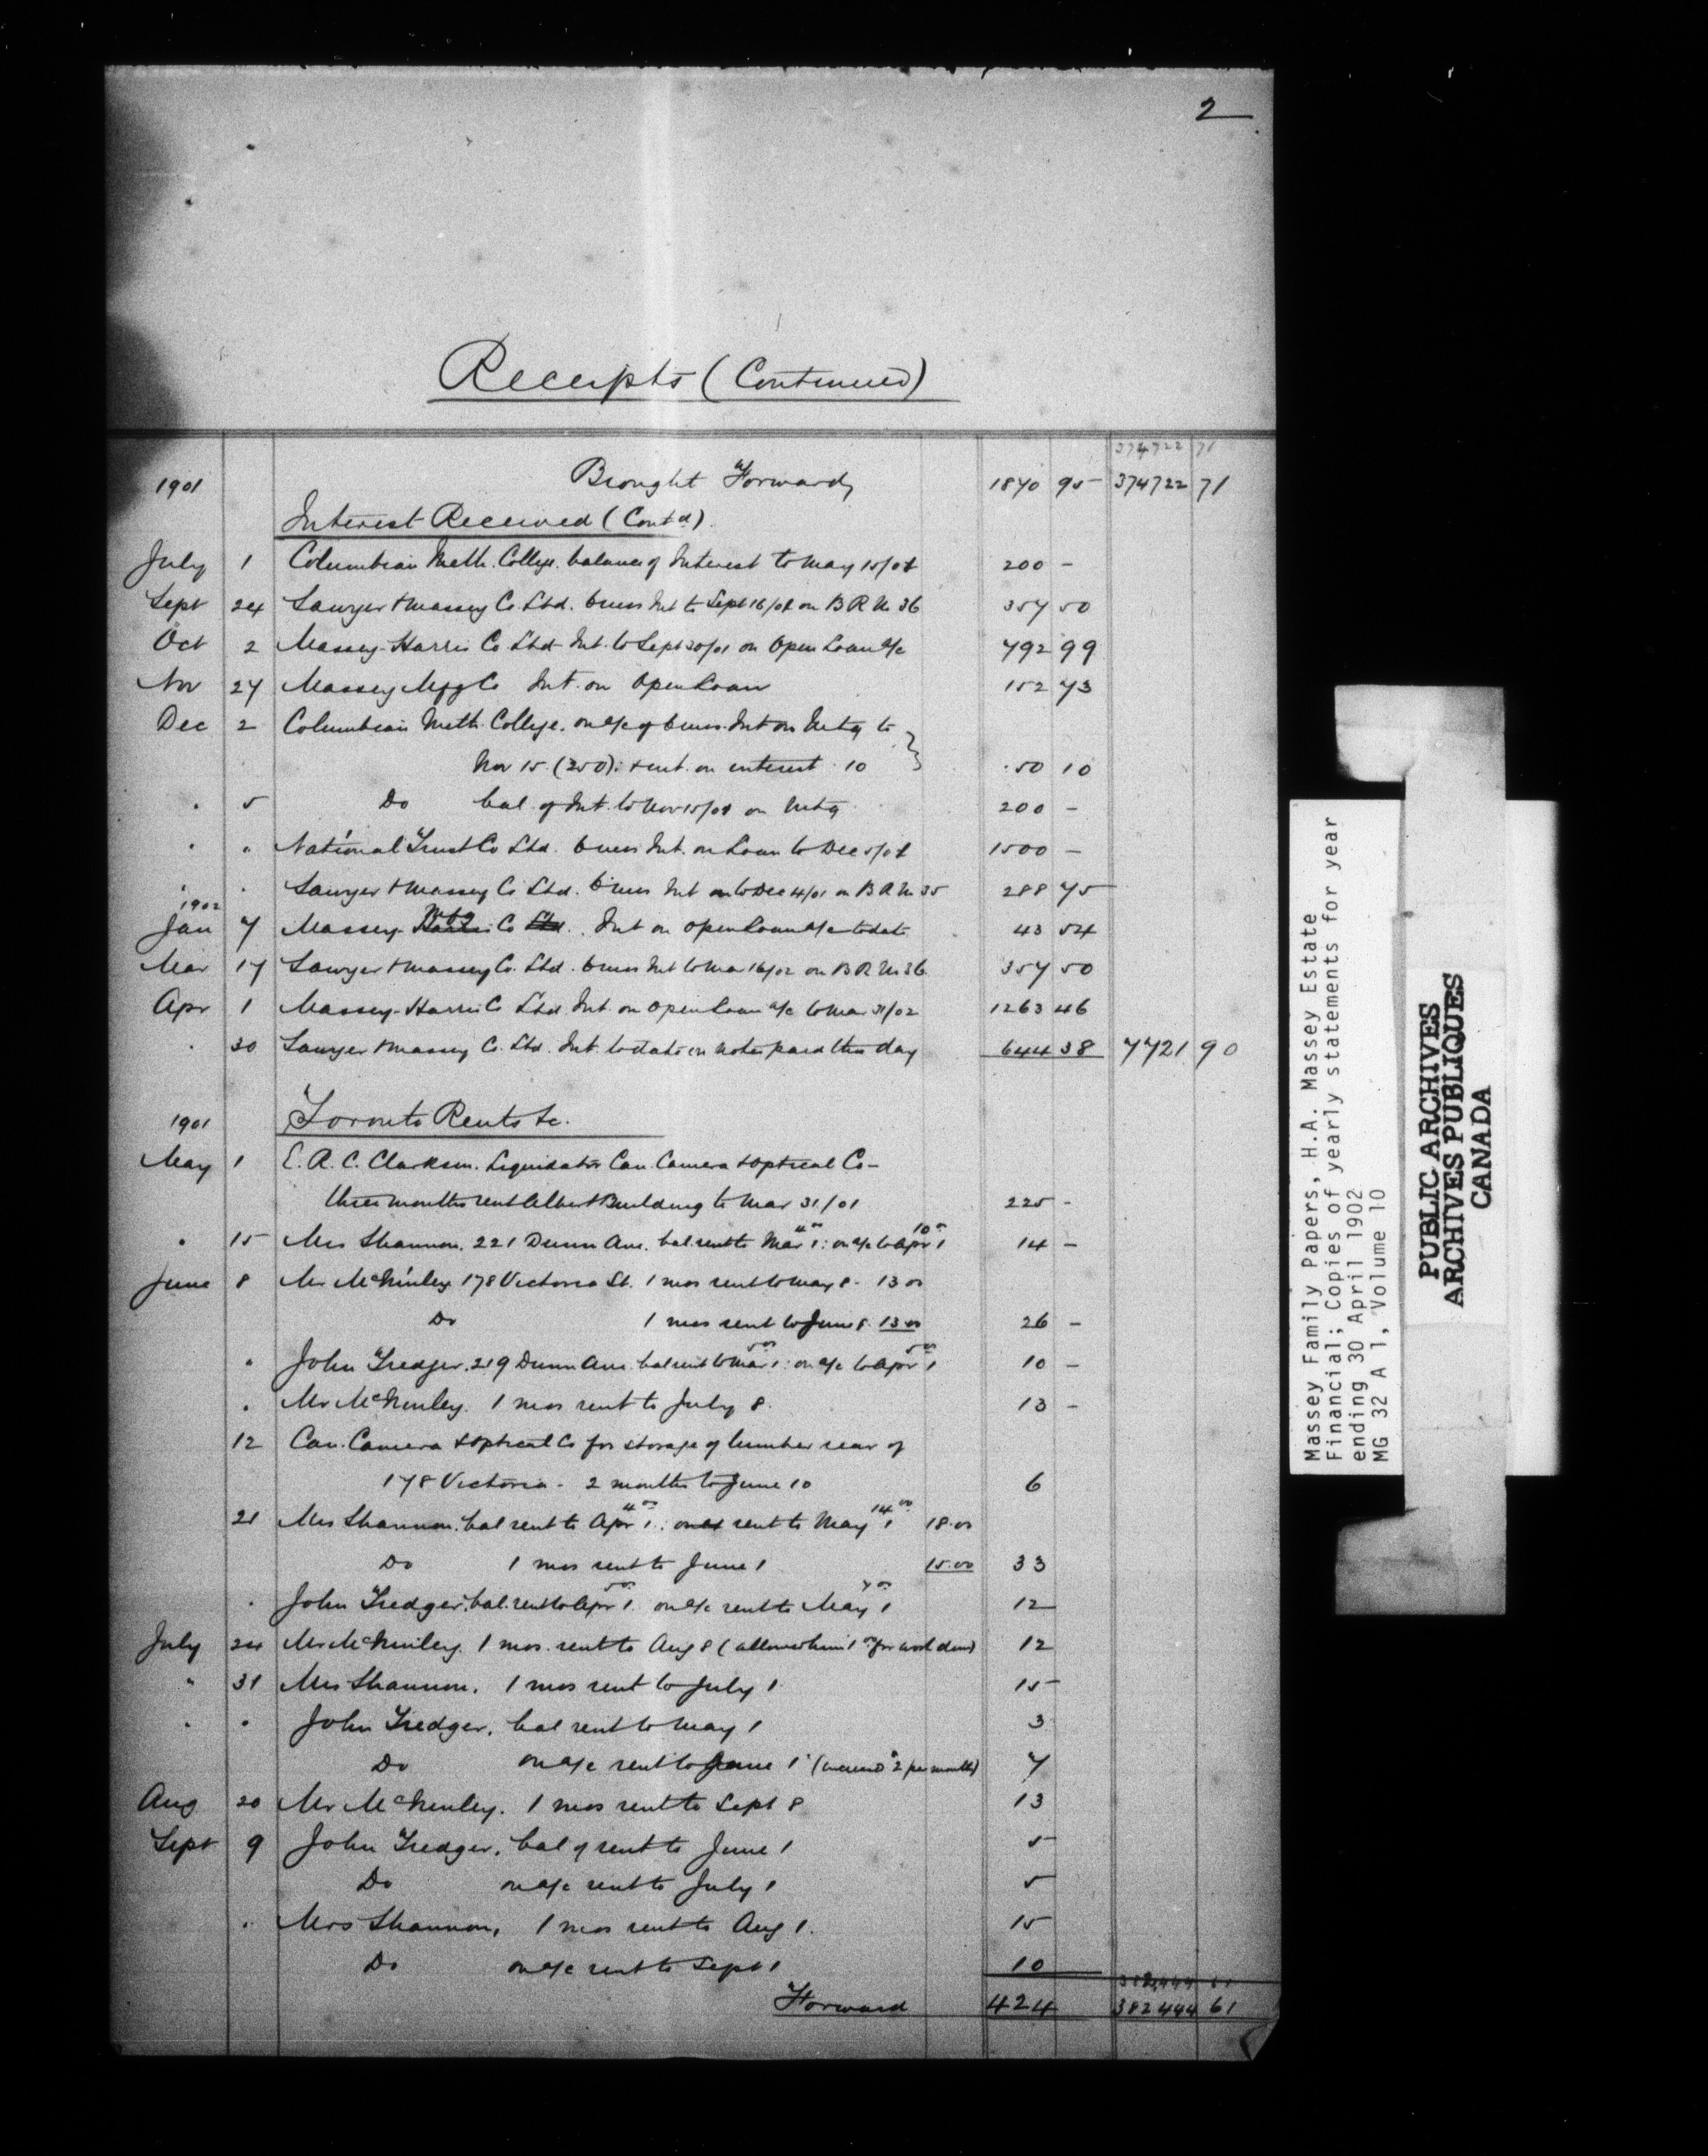 2
Receipts (Continued)
374722 71
1901 Brought Forward 1870 95 374722 71
Interest Received (Contd)
July 1 Columbian Meth. College. balance of Interest to May 15/01 200 -
Sept 24 Sawyer & Massey Co. Ltd. 6 mos Int to Sept 16/01 on B R No 36 357 50
Oct 2 Massey-Harris Co Ltd Int. to Sept 30/01 on Open Loan a/c 792 99
Nov 27 Massey Mfg Co Int. on Open Loan 152 73
Dec 2 Columbian Meth. College. on a/c of 6 mos. Int on Mtg to
Nov 15 (250): & int. on interest 10 50 10
" 5 Do bal. of Int. to Nov 15/01 on Mtg 200 -
" " National Trust Co Ltd. 6 mos Int. on Loan to Dec 5/01 1500 -
" " Sawyer & Massey Co Ltd. 6 mos Int to Dec 4/01 on B R No 35 288 75
1902
Jan 7 Massey Mfg Co Int on open loan a/c to date 43 54
Mar 17 Sawyer & Massey Co. Ltd. 6 mos Int to Mar 16/02 on B R No 36 357 50
Apr 1 Massey-Harris Co Ltd Int. on Open Loan a/c to Mar 31/02 1263 46
" 30 Sawyer & Massey Co. Ltd. Int. to date on notes paid this day 644 38 7721 90
1901 Toronto Rents &c.
May 1 E. R. C. Clarkson. Liquidator Can. Camera & Optical Co-
three months rent Albert Building to Mar 31/01 225 -
" 15 Mrs Shannon. 221 Dunn Ave. bal rent to Mar 1: 4 00 on a/c to Apr 1 10 00 14 -
June 8 Mr McKinley 178 Victoria St. 1 mos rent to May 8. 13 00
Do 1 mos rent to June 8 13 00 26 -
" John Tredger. 219 Dunn Ave. bal rent to Mar 1: 5 00 on a/c to Apr 1 5 00 10 -
" Mr McKinley. 1 mos rent to July 8. 13 -
12 Can. Camera & Optical Co for storage of lumber rear of
178 Victoria - 2 months to June 10 6
21 Mrs Shannon. bal rent to Apr 1: 4 00 rent to May 1 14 00 18.00
Do 1 mos rent to June 1 15.00 33
" John Tredger. bal. rent to Apr 1 5 00 on a/c rent to May 1 7 00 12
July 24 Mr McKinley. 1 mos. rent to Aug 8 (allowed him 1 00 for work done) 12
" 31 Mrs Shannon. 1 mos rent to July 1 15
" " John Tredger. bal rent to May 1 3
Do on a/c rent to June 1 (increased $2 per month) 7
Aug 20 Mr McKinley. 1 mos rent to Sept 8 13
Sept 9 John Tredger. bal of rent to June 1 5
Do on a/c rent to July 1 5
" Mrs Shannon, 1 mos rent to Aug 1. 15
Do on a/c rent to Sept 1 10
382,444 61
Forward 424 382444 61
Massey Family Papers, H.A. Massey Estate
Financial; Copies of yearly statements for year
ending 30 April 1902
MG 32 A 1, Volume 10
PUBLIC ARCHIVES
ARCHIVES PUBLIQUES
CANADA